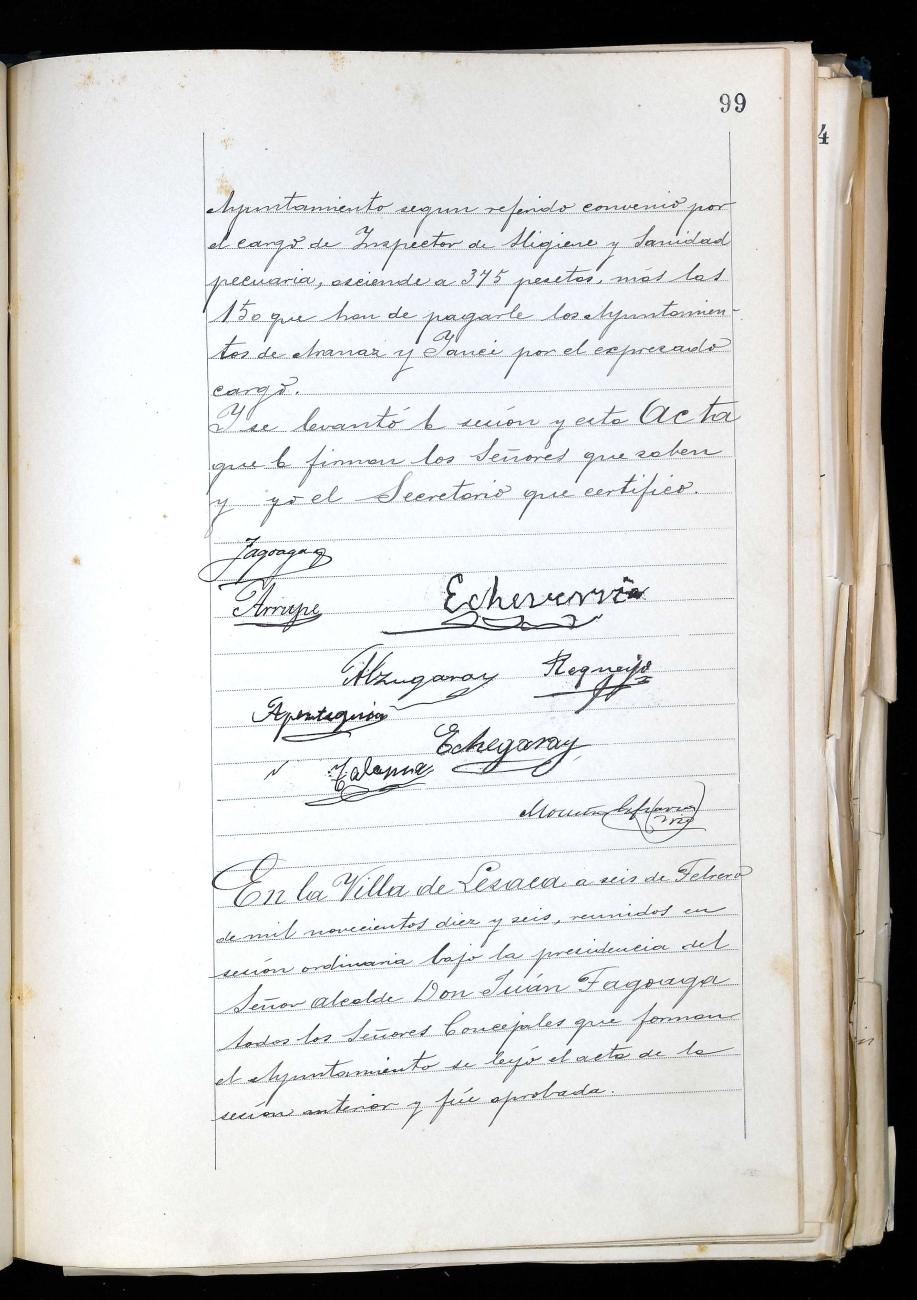 99
Ayuntamiento segun referido convenio por
el cargo de Inspector de Higiene y Sanidad
pecuaria, asciende a 375 pesetas, más las
150 que han de pagarle los Ayuntamien-
tos de Aranaz y Yanci por el expresado
cargo.
Y se levantó la sesión y esta Acta
que la firman los Señores que saben
y yo el Secretario que certifico.
Fagoaga
Arrupe Echeverria
Alzugaray Requeijo
Apestegui
Echegaray
En la Villa de Lesaca a seis de Febrero
de mil novecientos diez y seis, reunidos en
sesión ordinaria bajo la presidencia del
Señor Alcalde Don Juán Fagoaga
todos los Señores Concejales que forman
el Ayuntamiento se leyó el acta de la
sesión anterior y fué aprobada.